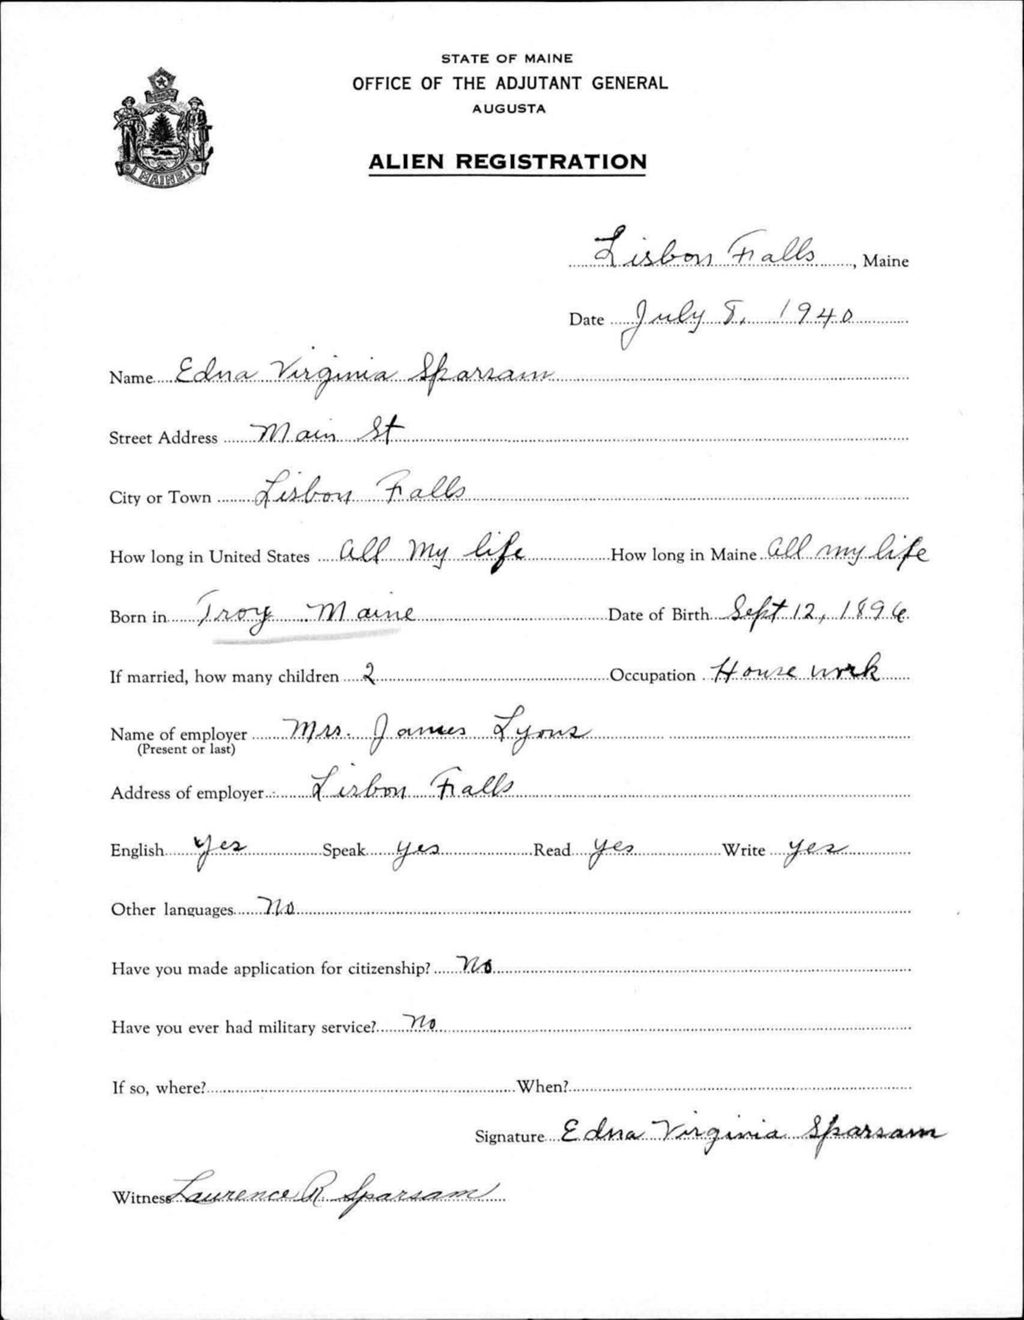 STATE OF MAINE
OFFICE OF THE ADJUTANT GENERAL
AUGUSTA
ALIEN REGISTRATION
MAINE
Lisbon Falls, Maine
Date July 8, 1940
Name Edna Virginia Sparsam
Street Address Main St
City or Town Lisbon Falls
How long in United States All my life How long in Maine All my life
Born in Troy Maine Date of Birth Sept 12, 1896
If married, how many children 2 Occupation House work
Name of employer Mrs. James Lyons
(Present or last)
Address of employer Lisbon Falls
English Yes Speak yes Read yes Write yes
Other languages No
Have you made application for citizenship? No
Have you ever had military service? No
If so, where? When?
Signature Edna Virginia Sparsam
Witness Laurence R Sparsam